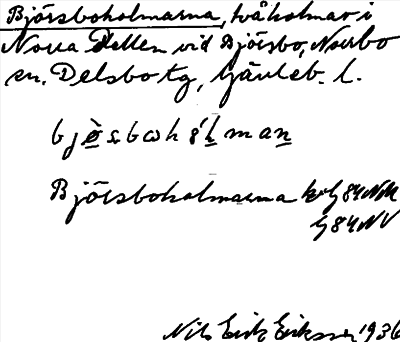 Björsboholmarna, två holmar i
Norra Dellen vid Björsbo, Norrbo
sn. Delsbo tg, Gävleb. l.
Björsboholmarna
Nils Erik Eriksson 1936